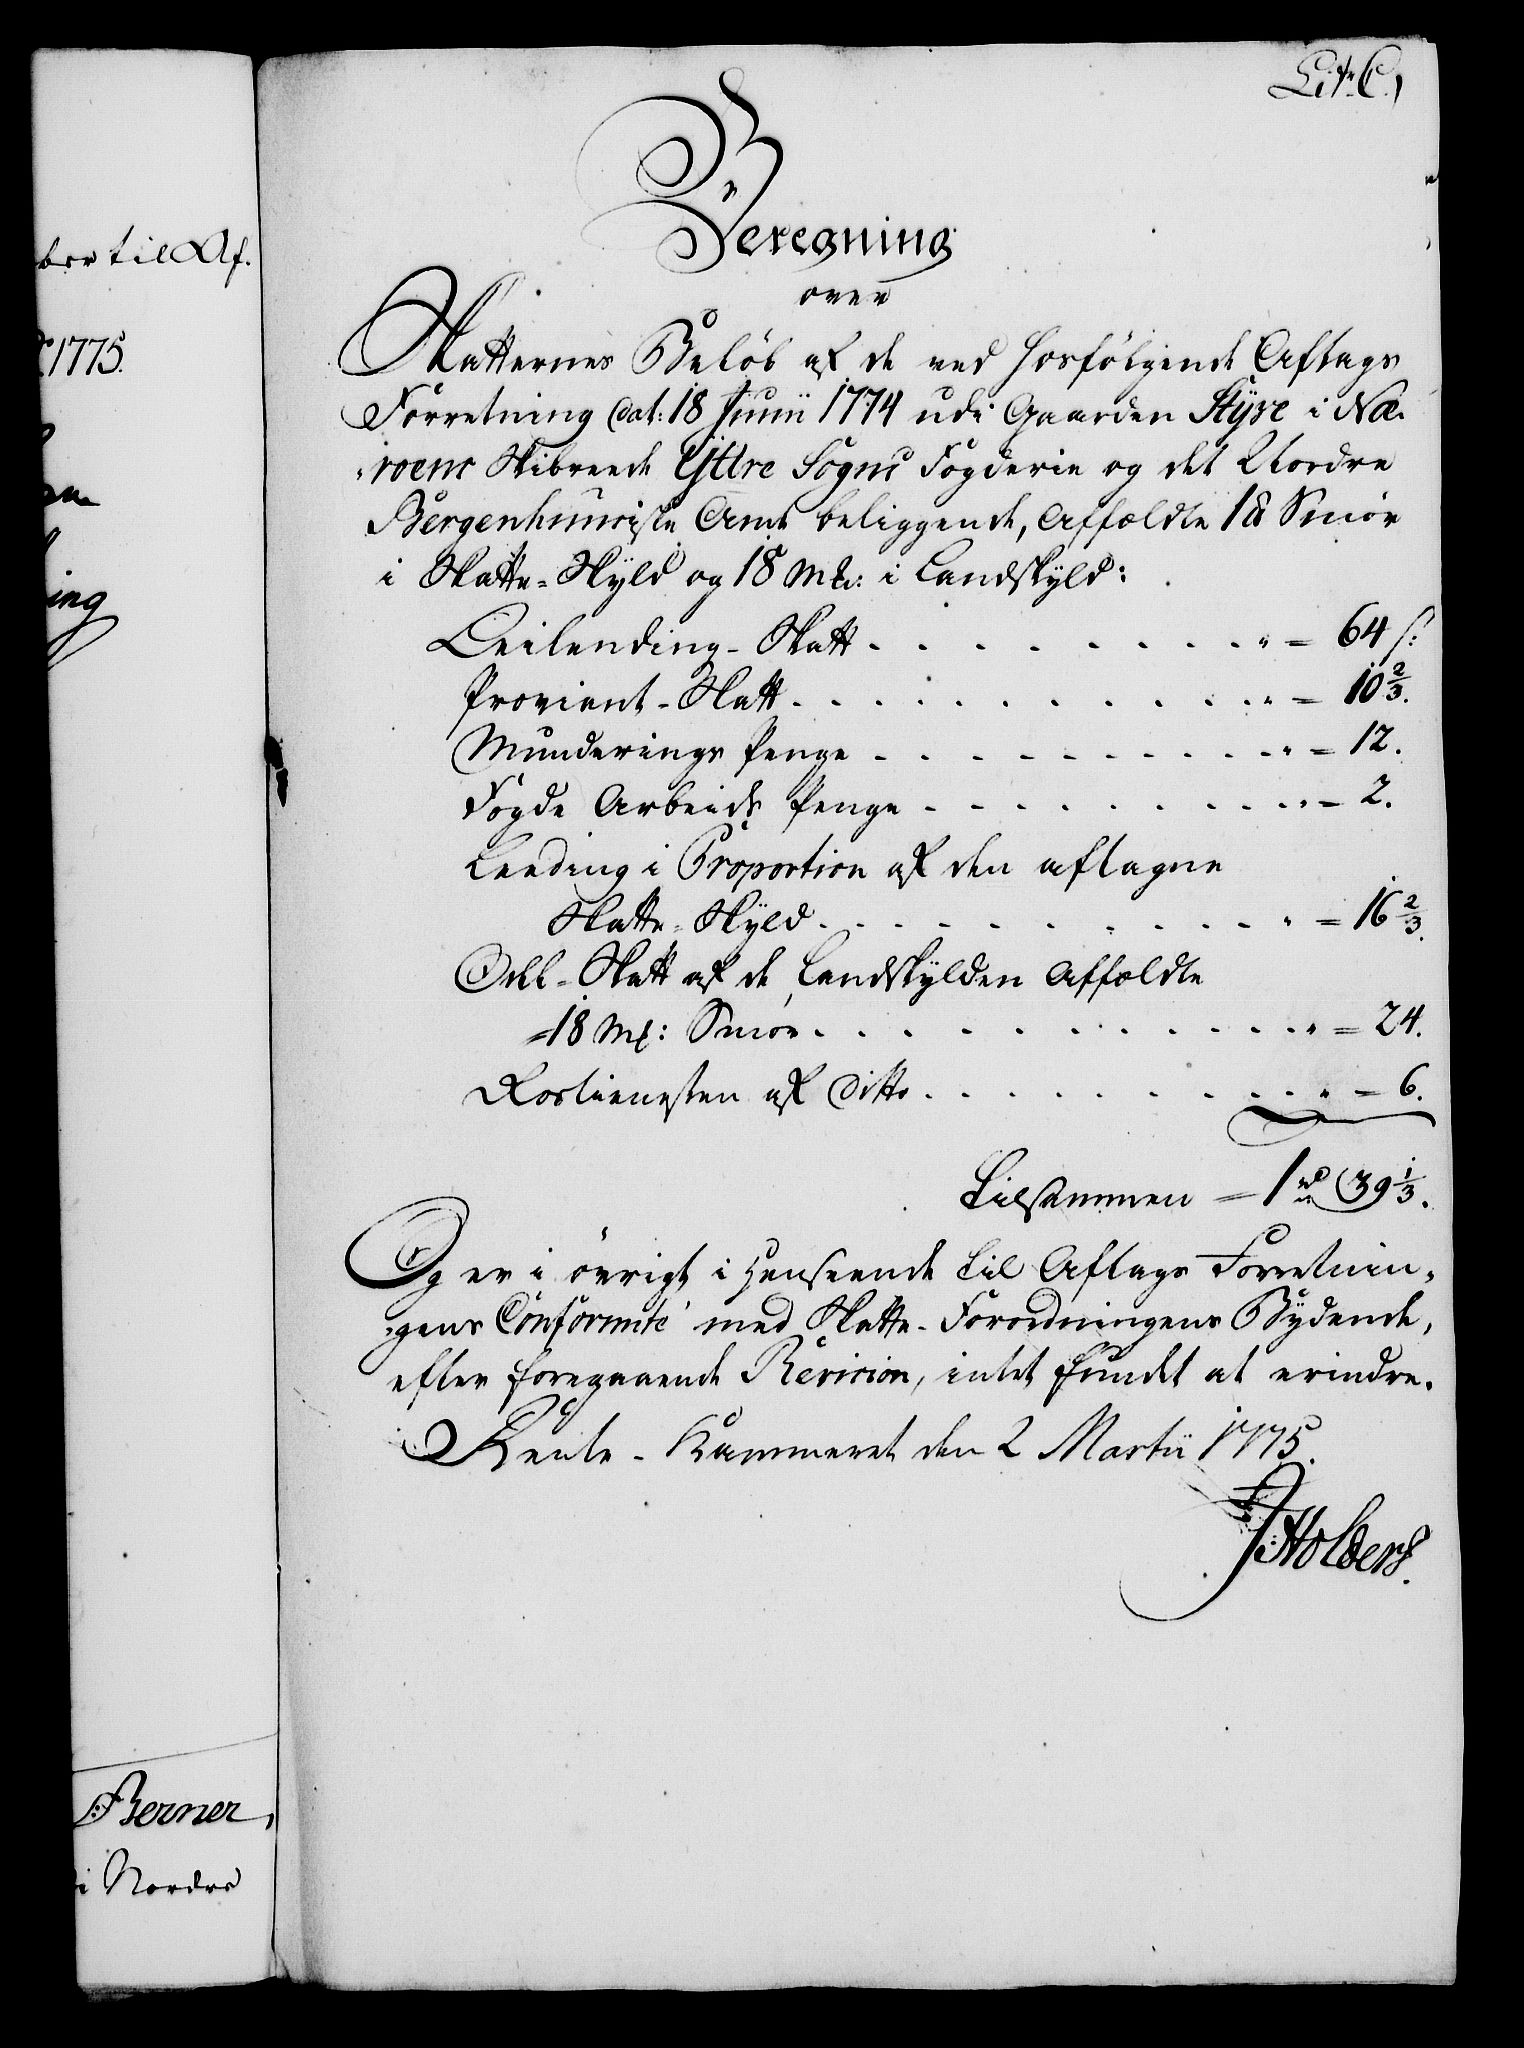 Litr C,
Beregning
over
Skatternes Beløb af de ved hosfølgende Aftags
Forretning dat: 18 Junii 1774 udi Gaarden Styve i Næ-
-roens Skibreede Yttre Sogns Fogderie og det Nordre
Bergenhuusiske Amt beliggende, Affældte 1 ℔ Smør
i Skatte-Skyld og 18 Mk: i Landskyld:
Leilending-Skatt . . . . . . . . " = 64 s:
Proviant-Skatt . . . . . . . . " = 10 2/3.
Munderings Penge . . . . . . . . " = 12.
Fogde Arbeids Penge . . . . . . . . " = 2.
Leeding i Proportion af den aftagne
Skatte-Skyld . . . . . . . . " = 16 2/3.
Odel-Skatt af de, Landskylden Affældte
=18 Mk: Smør . . . . . . . . " = 24.
Rostienesten af Ditto . . . . . . . . " = 6.
Tilsammen = 1 rd 39 1/3.
Og er i øvrigt i Henseende til Aftags Forretnin-
-gens Conformité med Skatte-Forordningens Bydende,
efter foregaaende Revision, intet fundet at erindre.
Rente-Kammeret den 2 Martii 1775.
Holbers.
ber til Af.
1775.
ing
Berner,
i Nordre